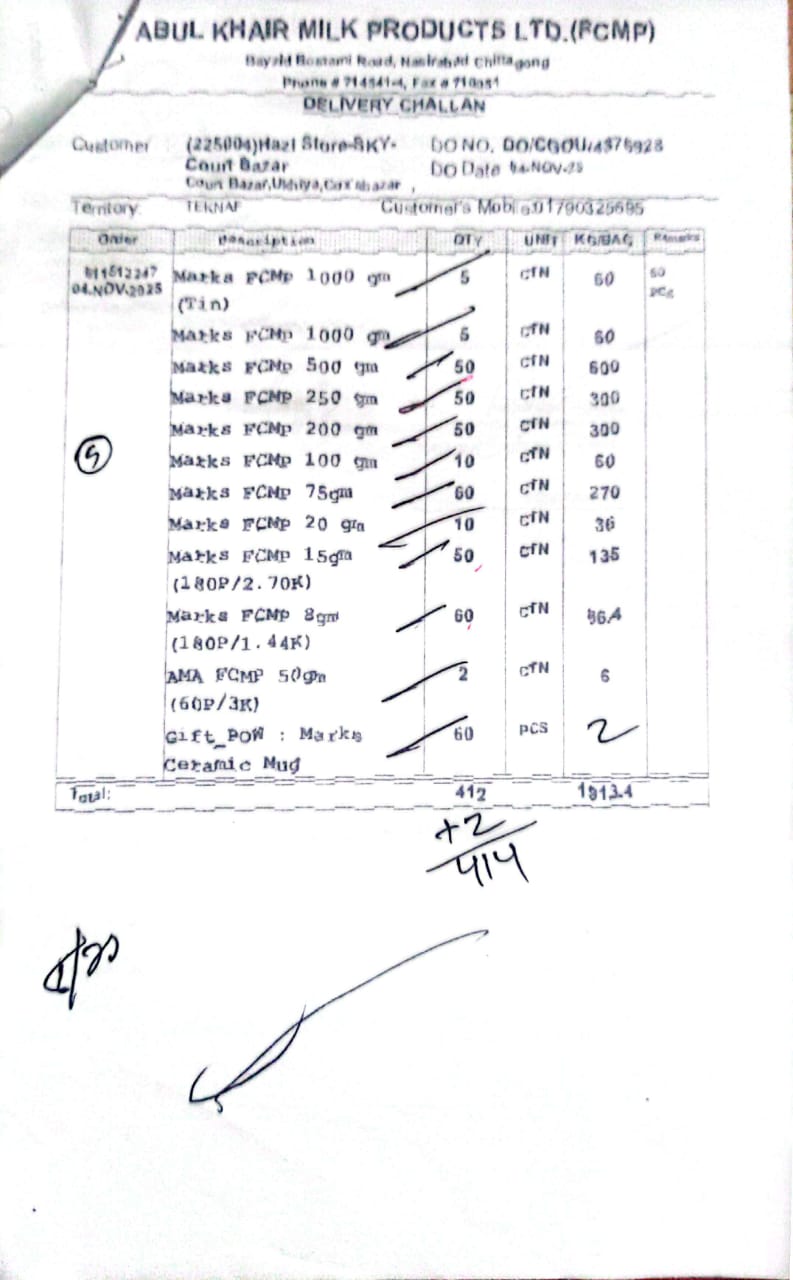 ABUL KHAIR MILK PRODUCTS LTD.(FCMP)
Bayzid Bostami Road, Nasirabad Chittagong
Phone # 714541-4, Fax # 710051
DELIVERY CHALLAN
Customer : (225004)Hazi Store-SKY- DO NO. DO/CGOU/4876928
Court Bazar DO Date 04-NOV-25
Court Bazar,Ukhiya,Cox'sbazar ,
Territory: TEKNAF Customer's Mobile:01790325695
Order Description QTY UNIT KG/BAG Remarks
811512247 Marks FCMP 1000 gm 5 CTN 60 60
04-NOV-2025 (Tin) PCs
Marks FCMP 1000 gm 5 CTN 60
Marks FCMP 500 gm 50 CTN 600
Marks FCMP 250 gm 50 CTN 300
Marks FCMP 200 gm 50 CTN 300
5 Marks FCMP 100 gm 10 CTN 60
Marks FCMP 75gm 60 CTN 270
Marks FCMP 20 gm 10 CTN 36
Marks FCMP 15gm 50 CTN 135
(180P/2.70K)
Marks FCMP 8gm 60 CTN 86.4
(180P/1.44K)
AMA FCMP 50gm 2 CTN 6
(60P/3K)
Gift_POW : Marks 60 PCS 2
Ceramic Mug
Total: 412 1913.4
+2
414